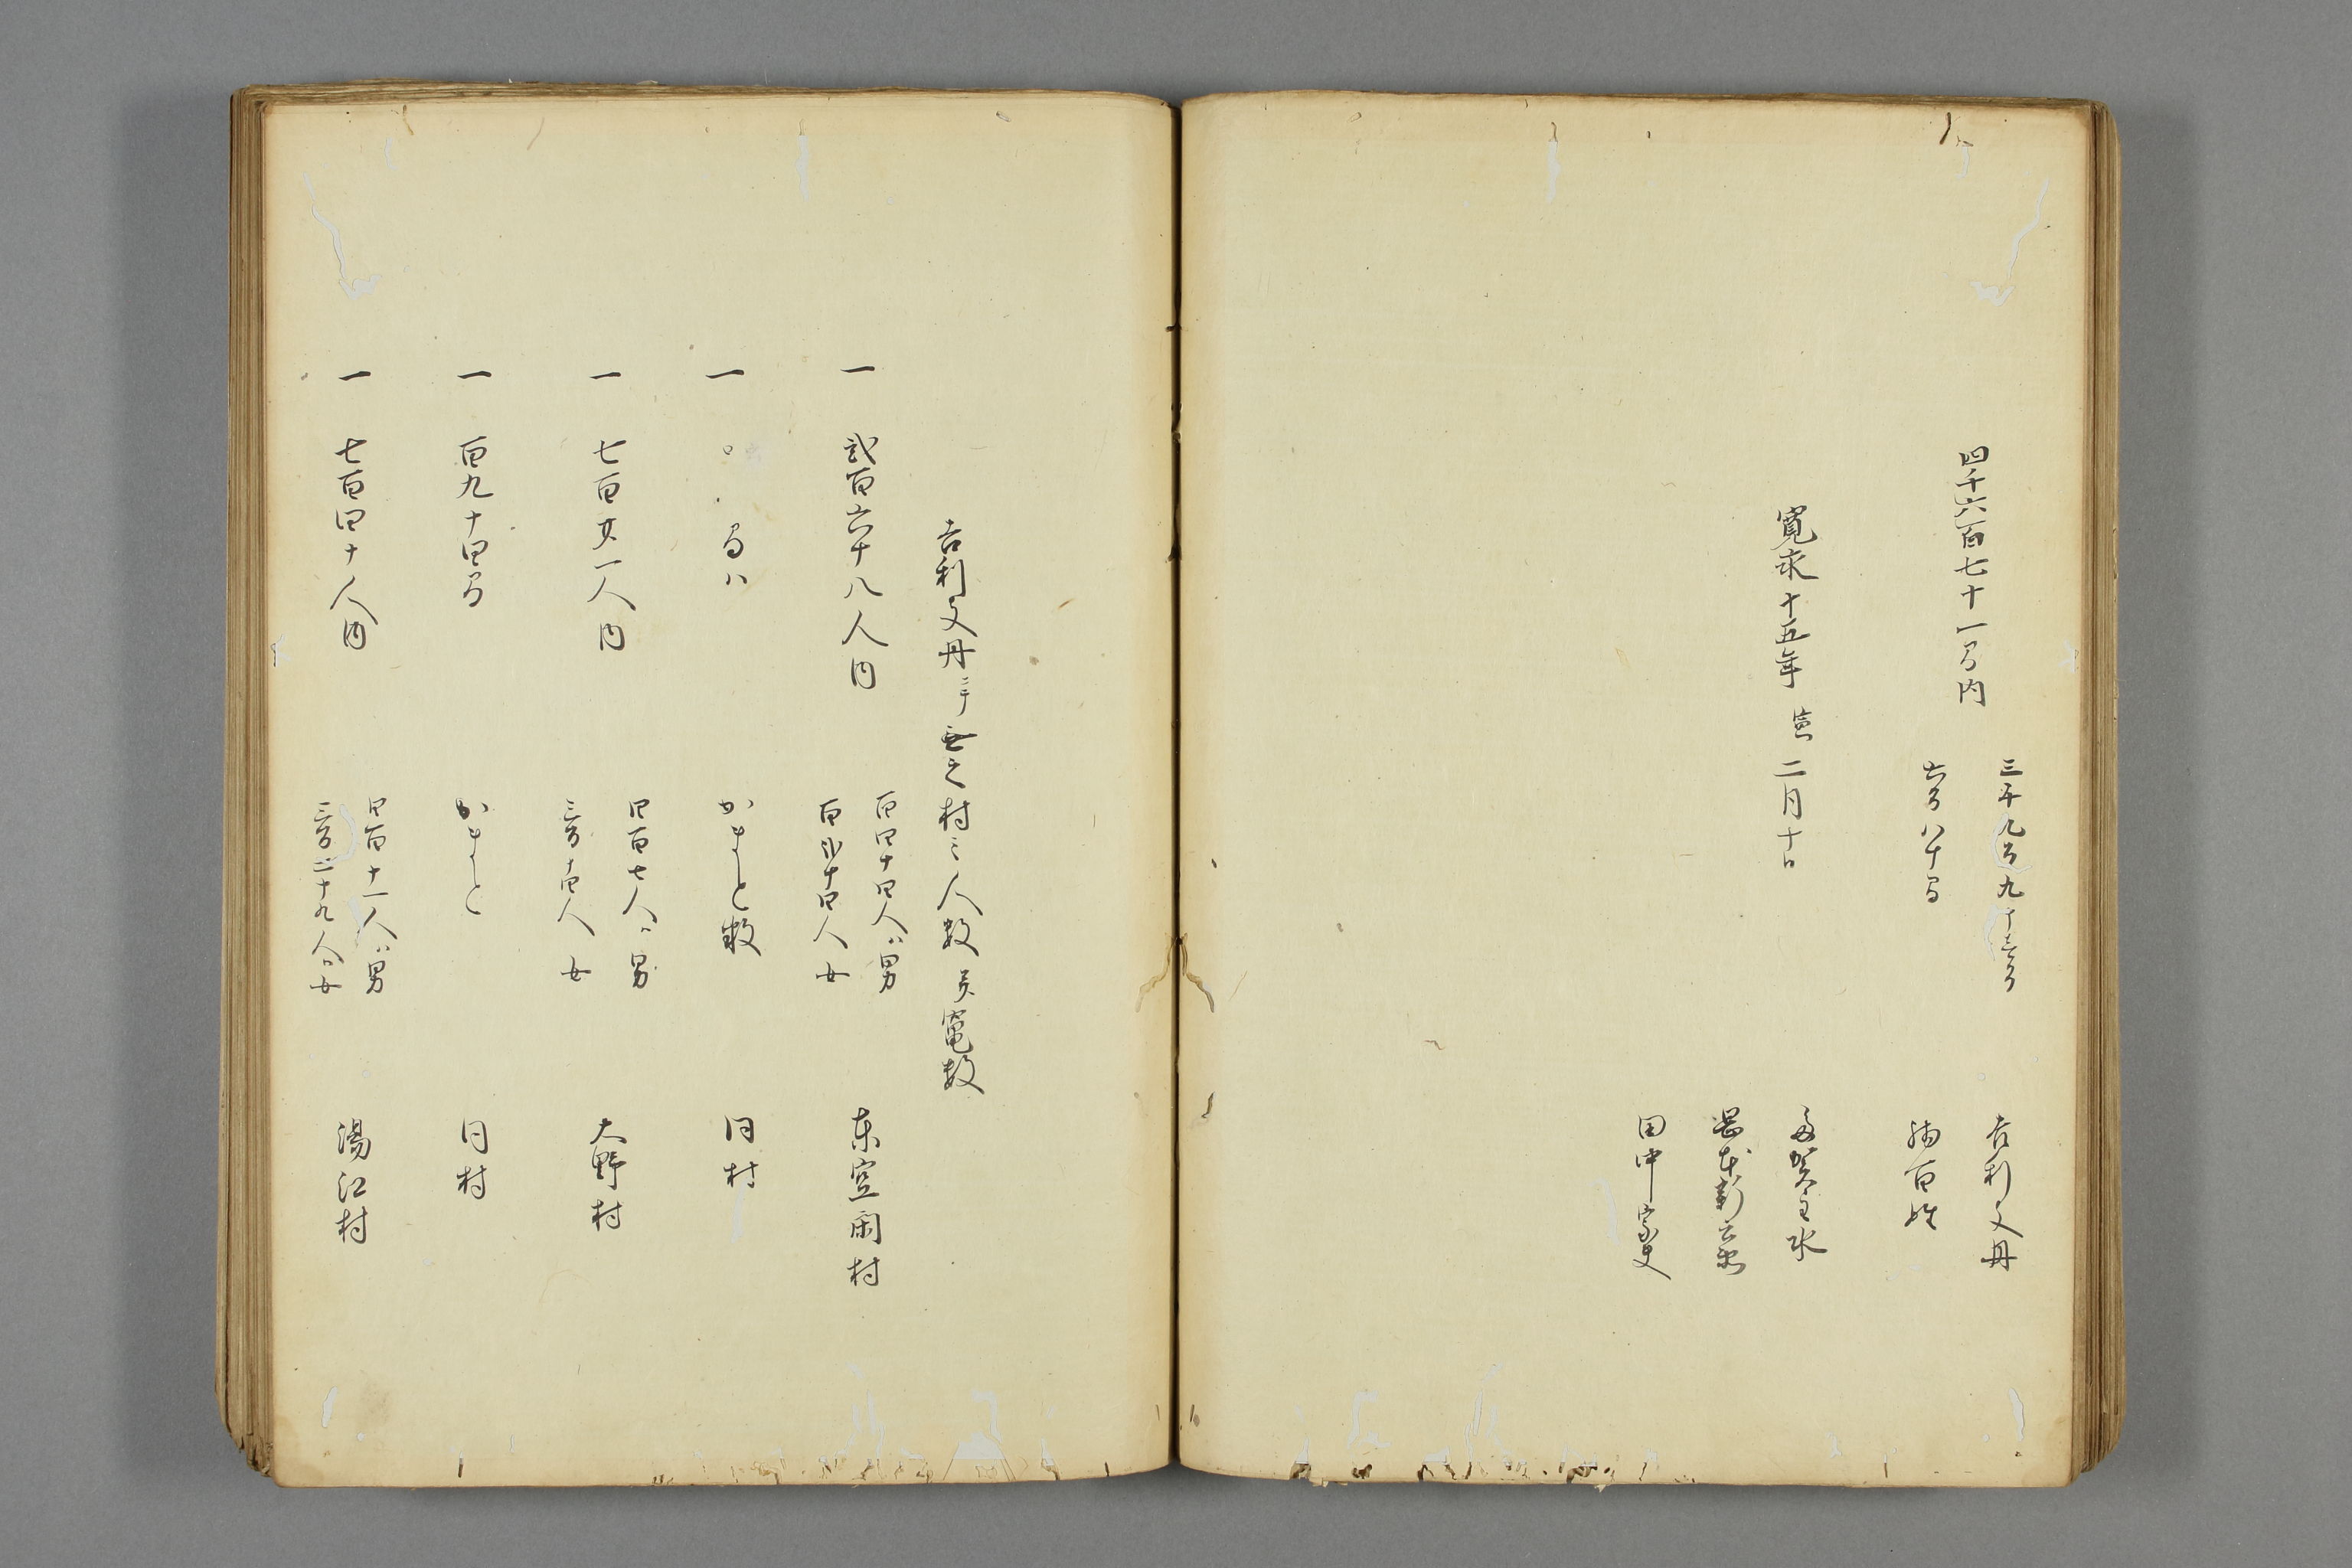 四千六百七十一間内
三千九百九十壱間　吉利支丹
六百八十間　　　　病百姓
寛永十五年寅二月十日
多賀主水
岡本新兵衛
田中宗夫
吉利支丹ニテ無之村々人数并竈数
一　弐百六十八人内　百四十四人ハ男
百弐十四人女　東空閑村
一　間ハ　かまと数　同村
一　七百廿一人内　四百七人ハ男
三百十四人女　大野村
一　百九十四間　かまと　同村
一　七百四十人内　四百十一人ハ男
三百二十九人ハ女　湯江村